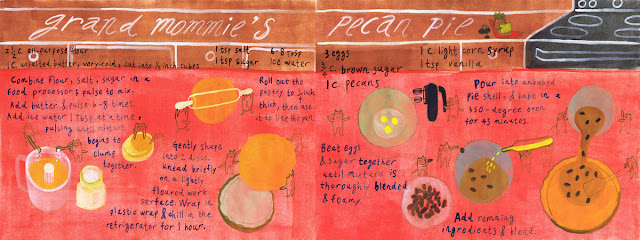 grand mommie's
pecan pie
2 ½ c. all-purpose flour
1 c. unsalted butter, very-cold, cut into ½ inch cubes
1 tsp salt
1 tsp sugar
6-8 Tbsp
ice water
Combine flour, salt, sugar in a
food processor & pulse to mix.
Add butter & pulse 6-8 times.
Add ice water 1 Tbsp at a time,
pulsing until mixture
begins to
clump
together.
Gently shape
into 2 discs.
Knead briefly
on a lightly
floured work
surface. Wrap in
plastic wrap & chill in the
refrigerator for 1 hour.
Roll out the
pastry to ⅛ inch
thick, then use
it to line the pan.
3 eggs
c. brown sugar
1 c. pecans
1 c. light corn syrup
1 tsp vanilla
Beat eggs
& sugar together
until mixture is
thoroughly blended
& foamy.
Pour into unbaked
pie shell, & bake in a
350-degree oven
for 45 minutes.
Add remaining
ingredients & blend.